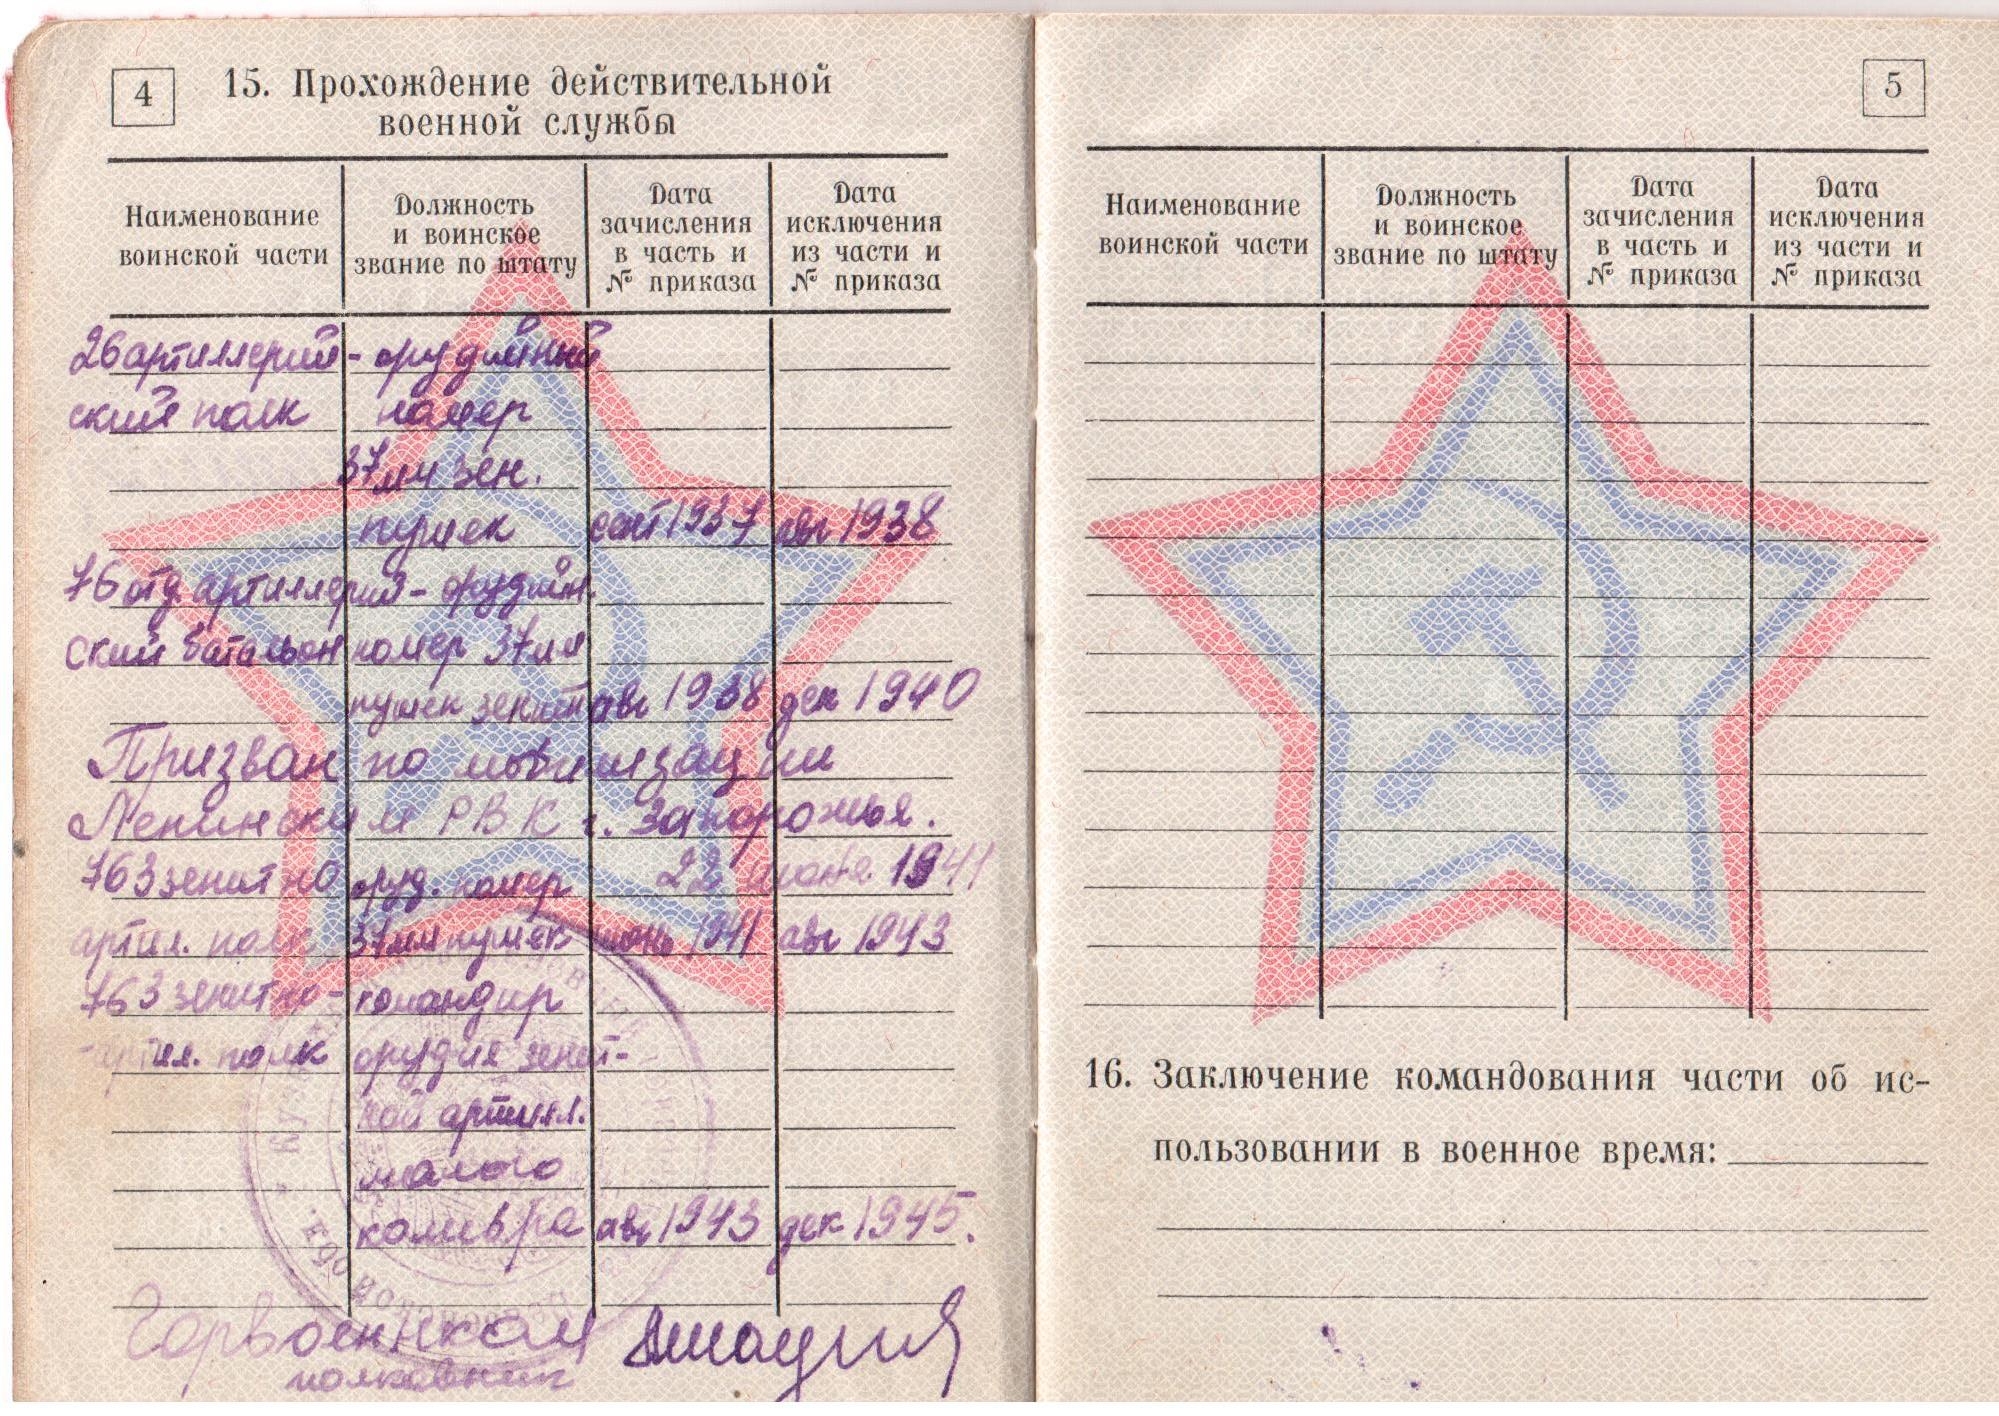 4
15. Прохождение действительной
военной службы
Наименование
воинской части
Должность
и воинское
звание по штату
Дата
зачисления
в часть и
№ приказа
Дата
исключения
из части и
№ приказа
26 артиллерий- орудийный
ский полк номер
37 мм зен.
пушек сент 1937 авг 1938
76 отд артиллерий- орудийн.
ский батальон номер 37 мм
пушек зенит авг 1938 дек 1940
Призван по мобилизации
Ленинским РВК г. Запорожья.
763 зенитно оруд. номер 22 июня 1941
артил. полк 37 мм пушек июнь 1941 авг 1943
763 зенитно- командир
артил. полк орудия зенит-
ной артилл.
малого
калибра авг 1943 дек 1945.
Горвоенком
полковник
5
Наименование
воинской части
Должность
и воинское
звание по штату
Дата
зачисления
в часть и
№ приказа
Дата
исключения
из части и
№ приказа
16. Заключение командования части об ис-
пользовании в военное время: